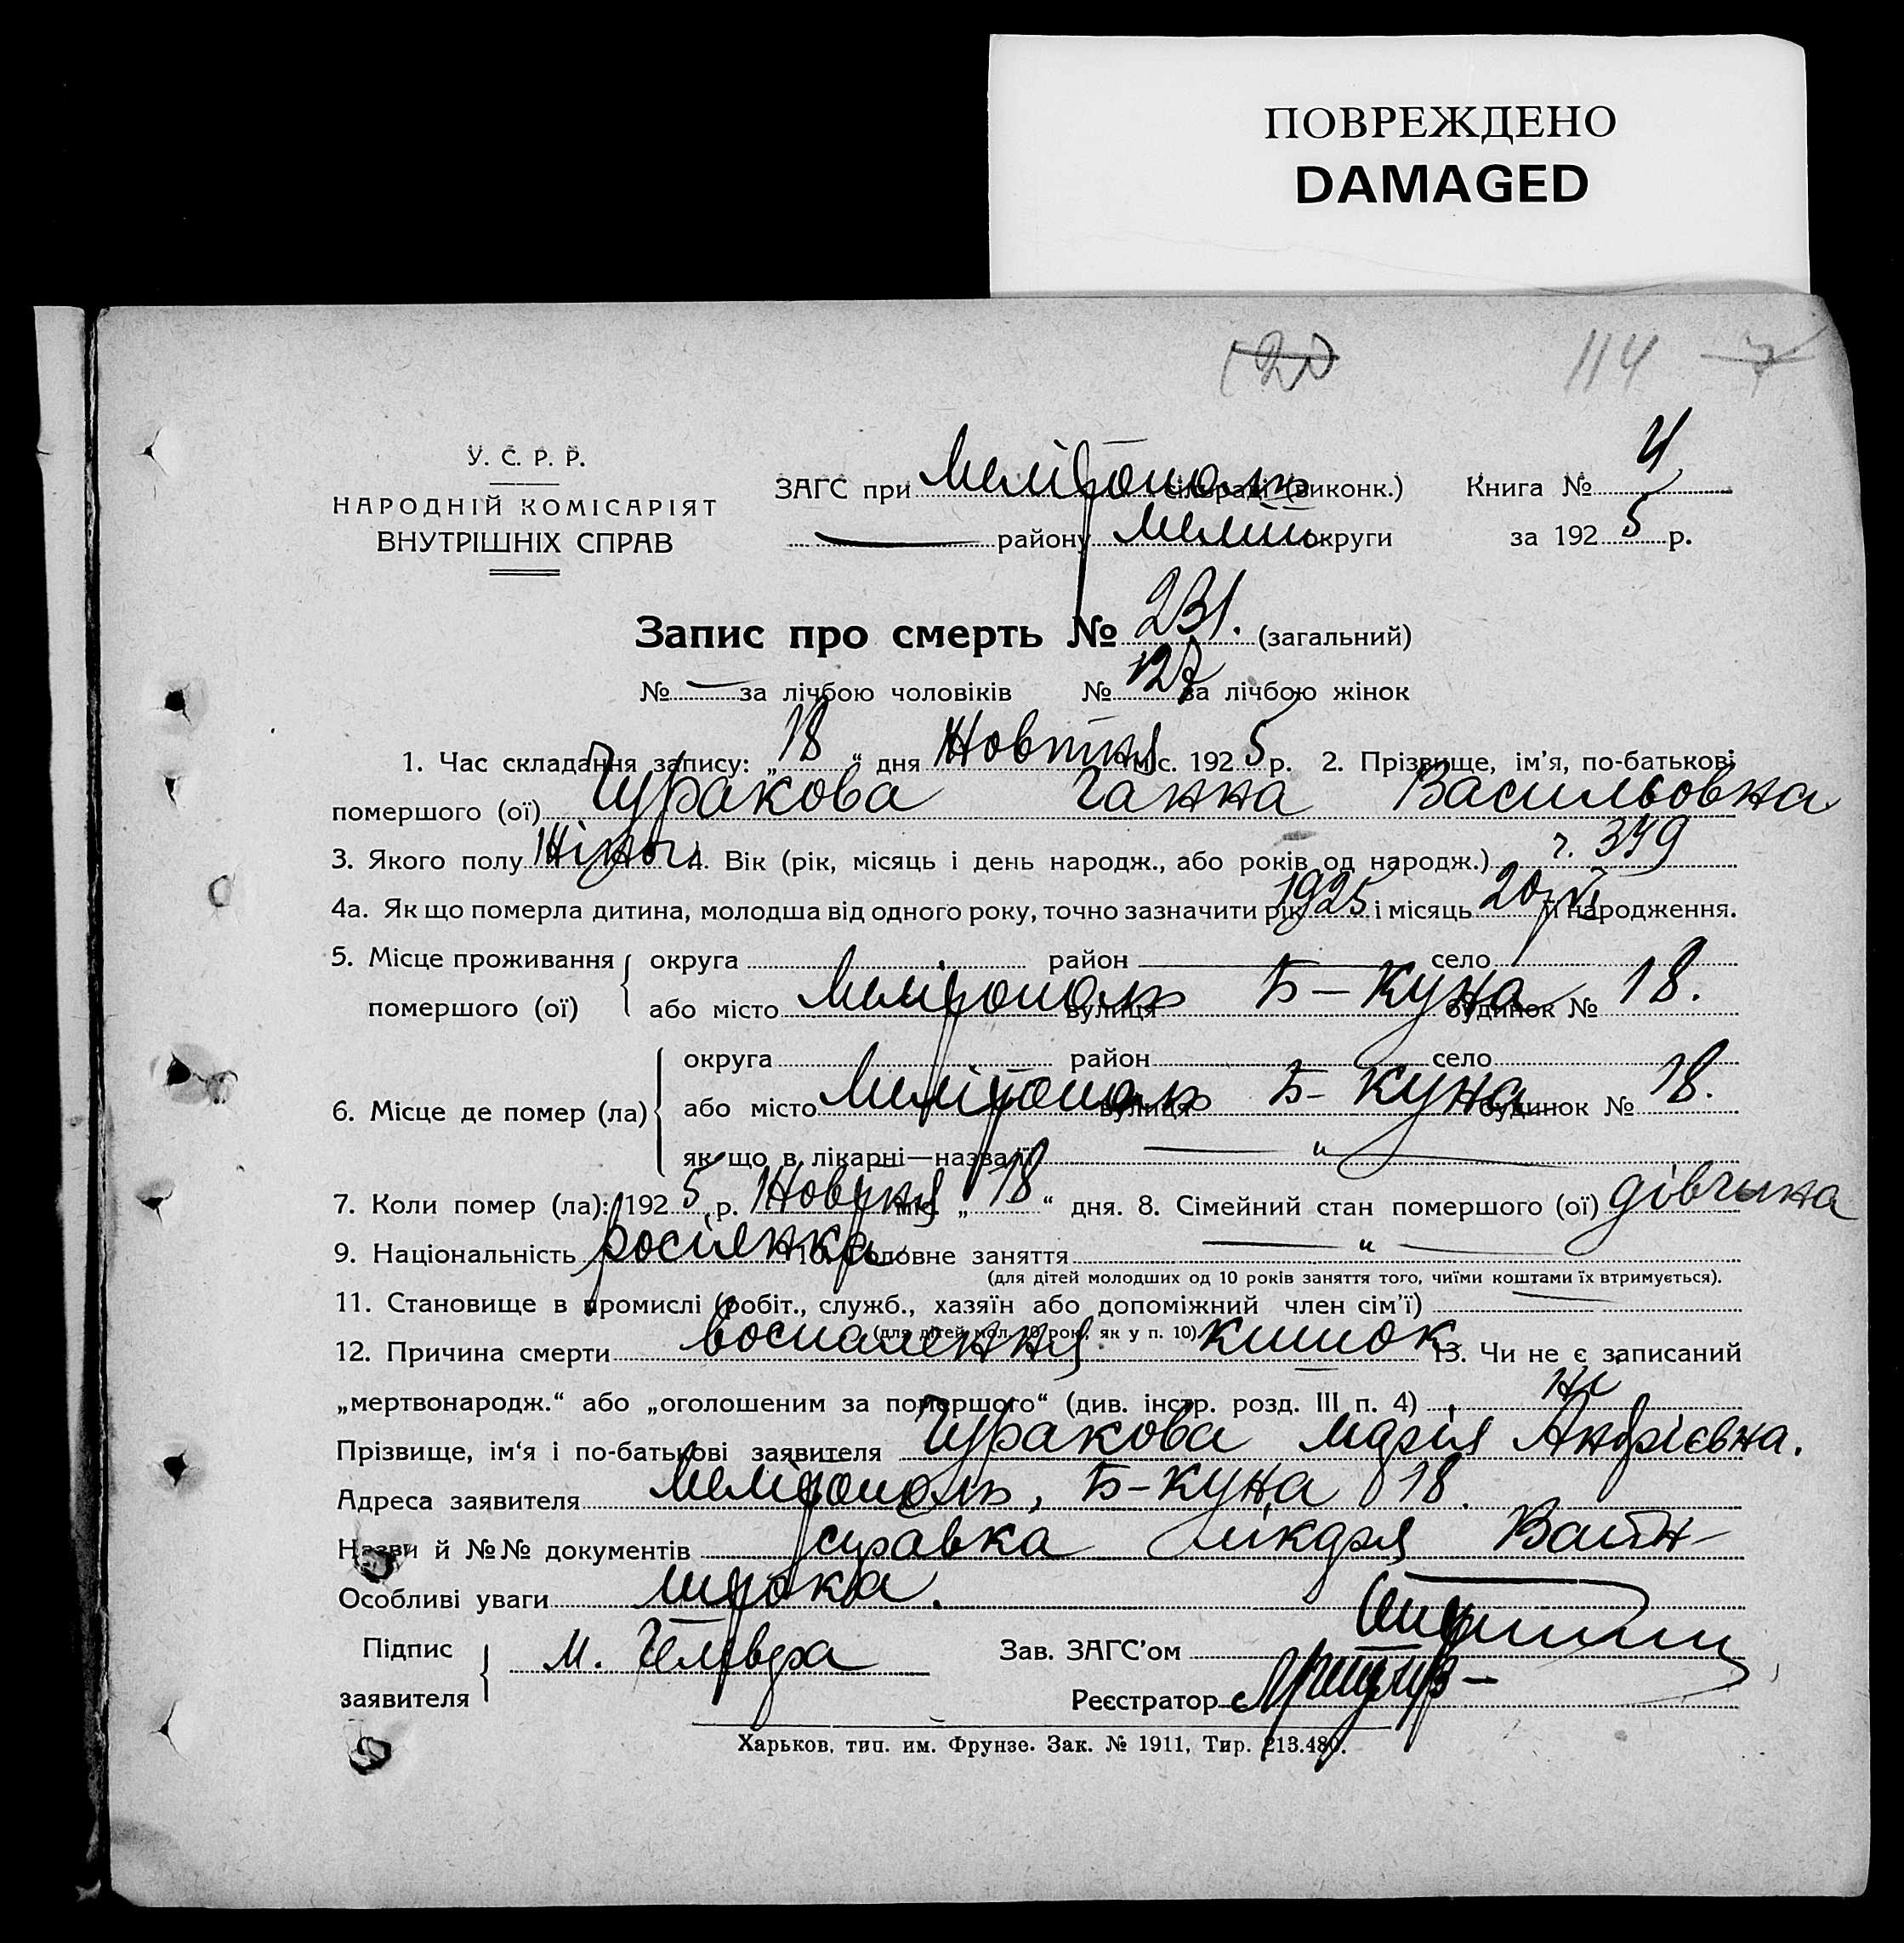 ПОВРЕЖДЕНО
DAMAGED
114
У. С. Р. Р.
НАРОДНІЙ КОМІСАРІЯТ
ВНУТРІШНІХ СПРАВ
ЗАГС при Мелітополь сільраді (виконк.) Книга № 4
району Меліт округи за 1925 р.
Запис про смерть № 231. (загальний)
№ — за лічбою чоловіків № 127 за лічбою жінок
1. Час складання запису: „18“ дня Новтня міс. 1925 р. 2. Прізвище, ім'я, по-батькові
помершого (ої) Чуракова Ганна Васильовна
3. Якого полу Жіноч. 4. Вік (рік, місяць і день народж., або років од народж.) г. 349
4а. Як що померла дитина, молодша від одного року, точно зазначити рік 1925 і місяць 20/VI її народження.
5. Місце проживання помершого (ої) округа район село
або місто Мелітополь вулиця Б-Куна будинок № 18.
6. Місце де помер (ла) округа район село
або місто Мелітополь вулиця Б-Куна будинок № 18.
як що в лікарні—назва її — " —
7. Коли помер (ла): 1925 р. Новтня міс. „18“ дня. 8. Сімейний стан помершого (ої) дівчина
9. Національність росіянка 10. Головне заняття — " —
(для дітей молодших од 10 років заняття того, чиїми коштами їх втримується).
11. Становище в промислі (робіт., служб., хазяїн або допоміжний член сім'ї) —
(для дітей мол. 10 рок., як у п. 10).
12. Причина смерти воспалення кишок 13. Чи не є записаний
„мертвонародж.“ або „оголошеним за помершого“ (див. інстр. розд. III п. 4) ні
Прізвище, ім'я і по-батькові заявителя Чуракова Марія Андрієвна.
Адреса заявителя Мелітополь, Б-Куна 18.
Назви й №№ документів справка лікаря Вайн-
Особливі уваги
Підпис заявителя М. Зав. ЗАГС'ом
Реєстратор
Харьков, тип. им. Фрунзе. Зак. № 1911, Тир. 213.480.